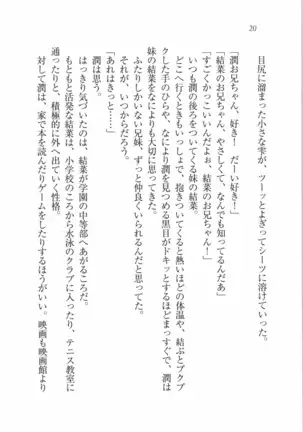 20
目尻に溜まった小さな雫が、ツーッとよぎってシーツに溶けていった。
「潤お兄ちゃん、好き！　だーい好き！」
「結菜のお兄ちゃん、やさしくて、なんでも知ってるんだあ」
「すごくかっこいいんだよぉ、結菜のお兄ちゃん！」
いつも潤の後ろをついてくる妹の結菜。
どこへ行くときもいっしょで、抱きついてくると熱いほどの体温や、結ぶとプクプ
クした手のひらや、なにより潤を見つめる黒目がドキッとするほどまっすぐで、潤は
妹の結菜をなにより大切に思ってきた。
ふたりしかいない兄妹、ずっと仲良くいられるんだと思ってた。
それが、いつからだろう。
「あれはきっと……」
潤は思う。
はっきり気づいたのは、結菜が学園の中等部へあがるころだ。
もともと活発な結菜は、小学校のころから水泳のクラブに入ったり、テニス教室に
通ったりと、積極的に外へ出ていく性格。
対して潤は、家で本を読んだりゲームをしたりするほうがいい。映画も映画館より